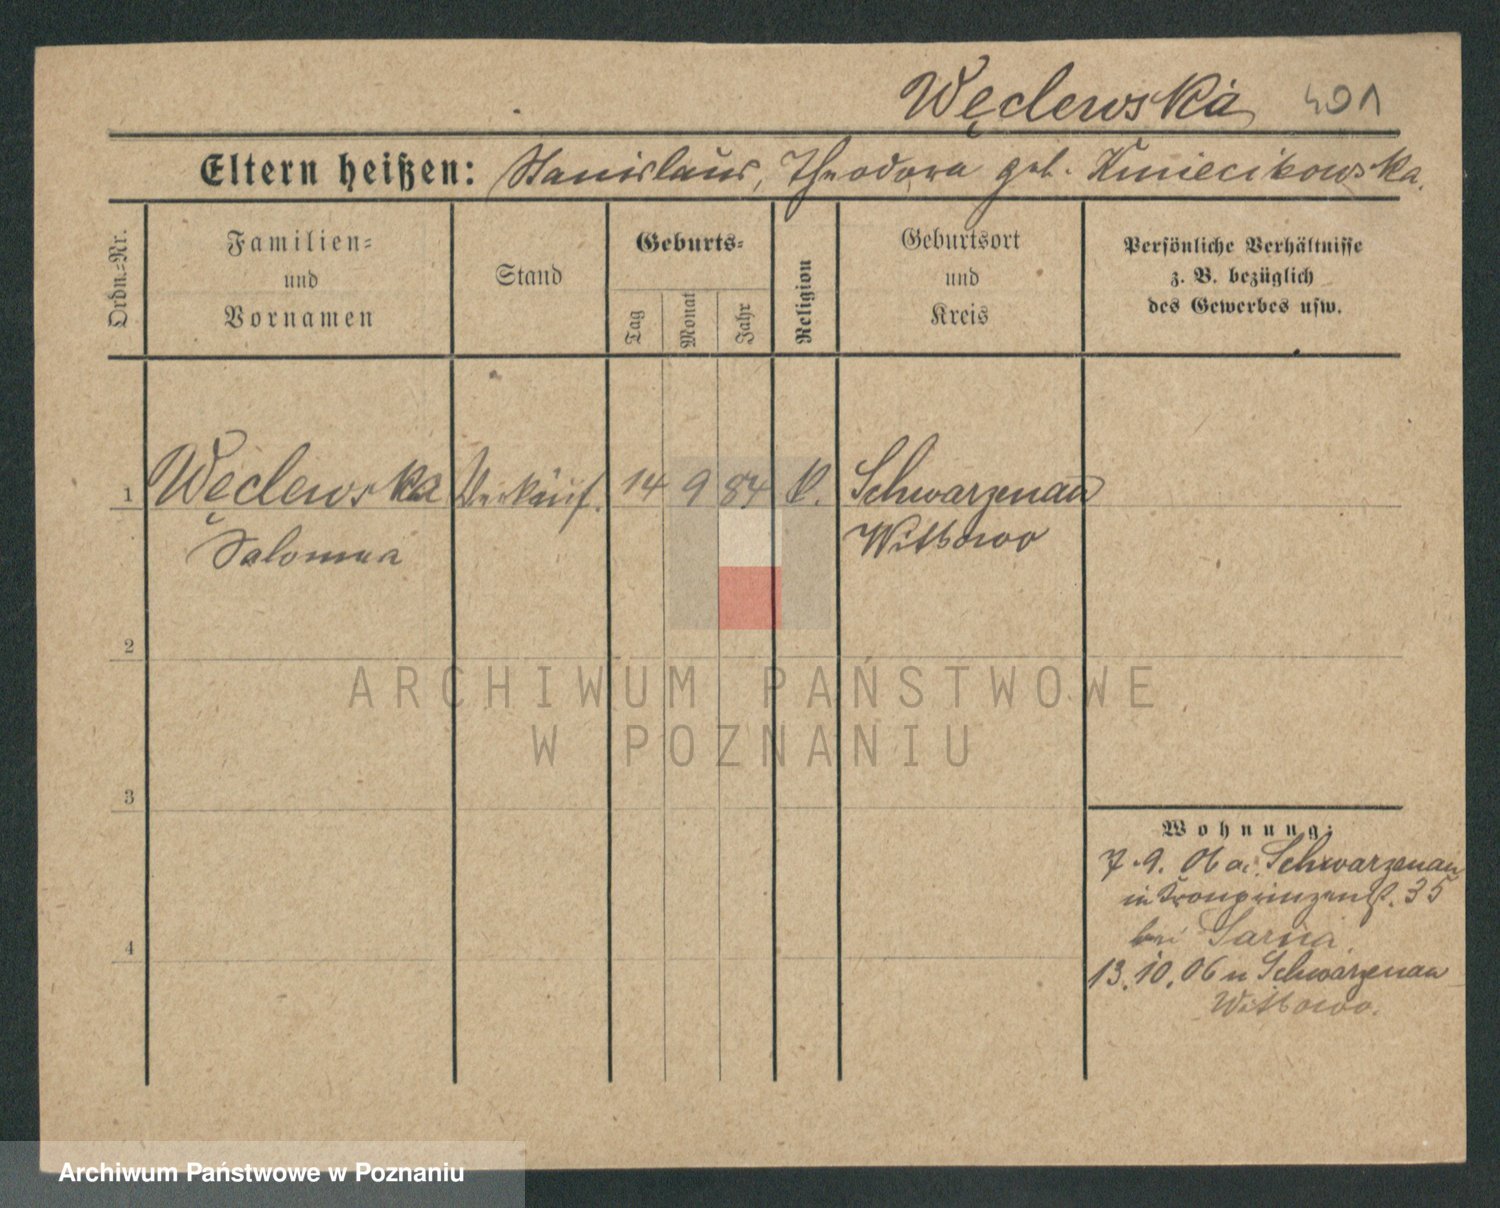 Węclewska 401
Eltern heißen: Stanislaus, Theodora geb. Kmiecikowska.
Ordn.=Nr.
Familien=
und
Vornamen
Stand
Geburts=
Tag
Monat
Jahr
Religion
Geburtsort
und
Kreis
Persönliche Verhältnisse
z. B. bezüglich
des Gewerbes usw.
1 Węclewska Verkäuf. 14 9 84 k. Schwarzenau
Salomea Witkowo
2
ARCHIWUM PAŃSTWOWE
W POZNANIU
3
Wohnung:
7.9. 06 a. Schwarzenau
in Kronprinzenst. 35
bei Sarna.
4
13.10.06 n Schwarzenau
Witkowo.
Archiwum Państwowe w Poznaniu